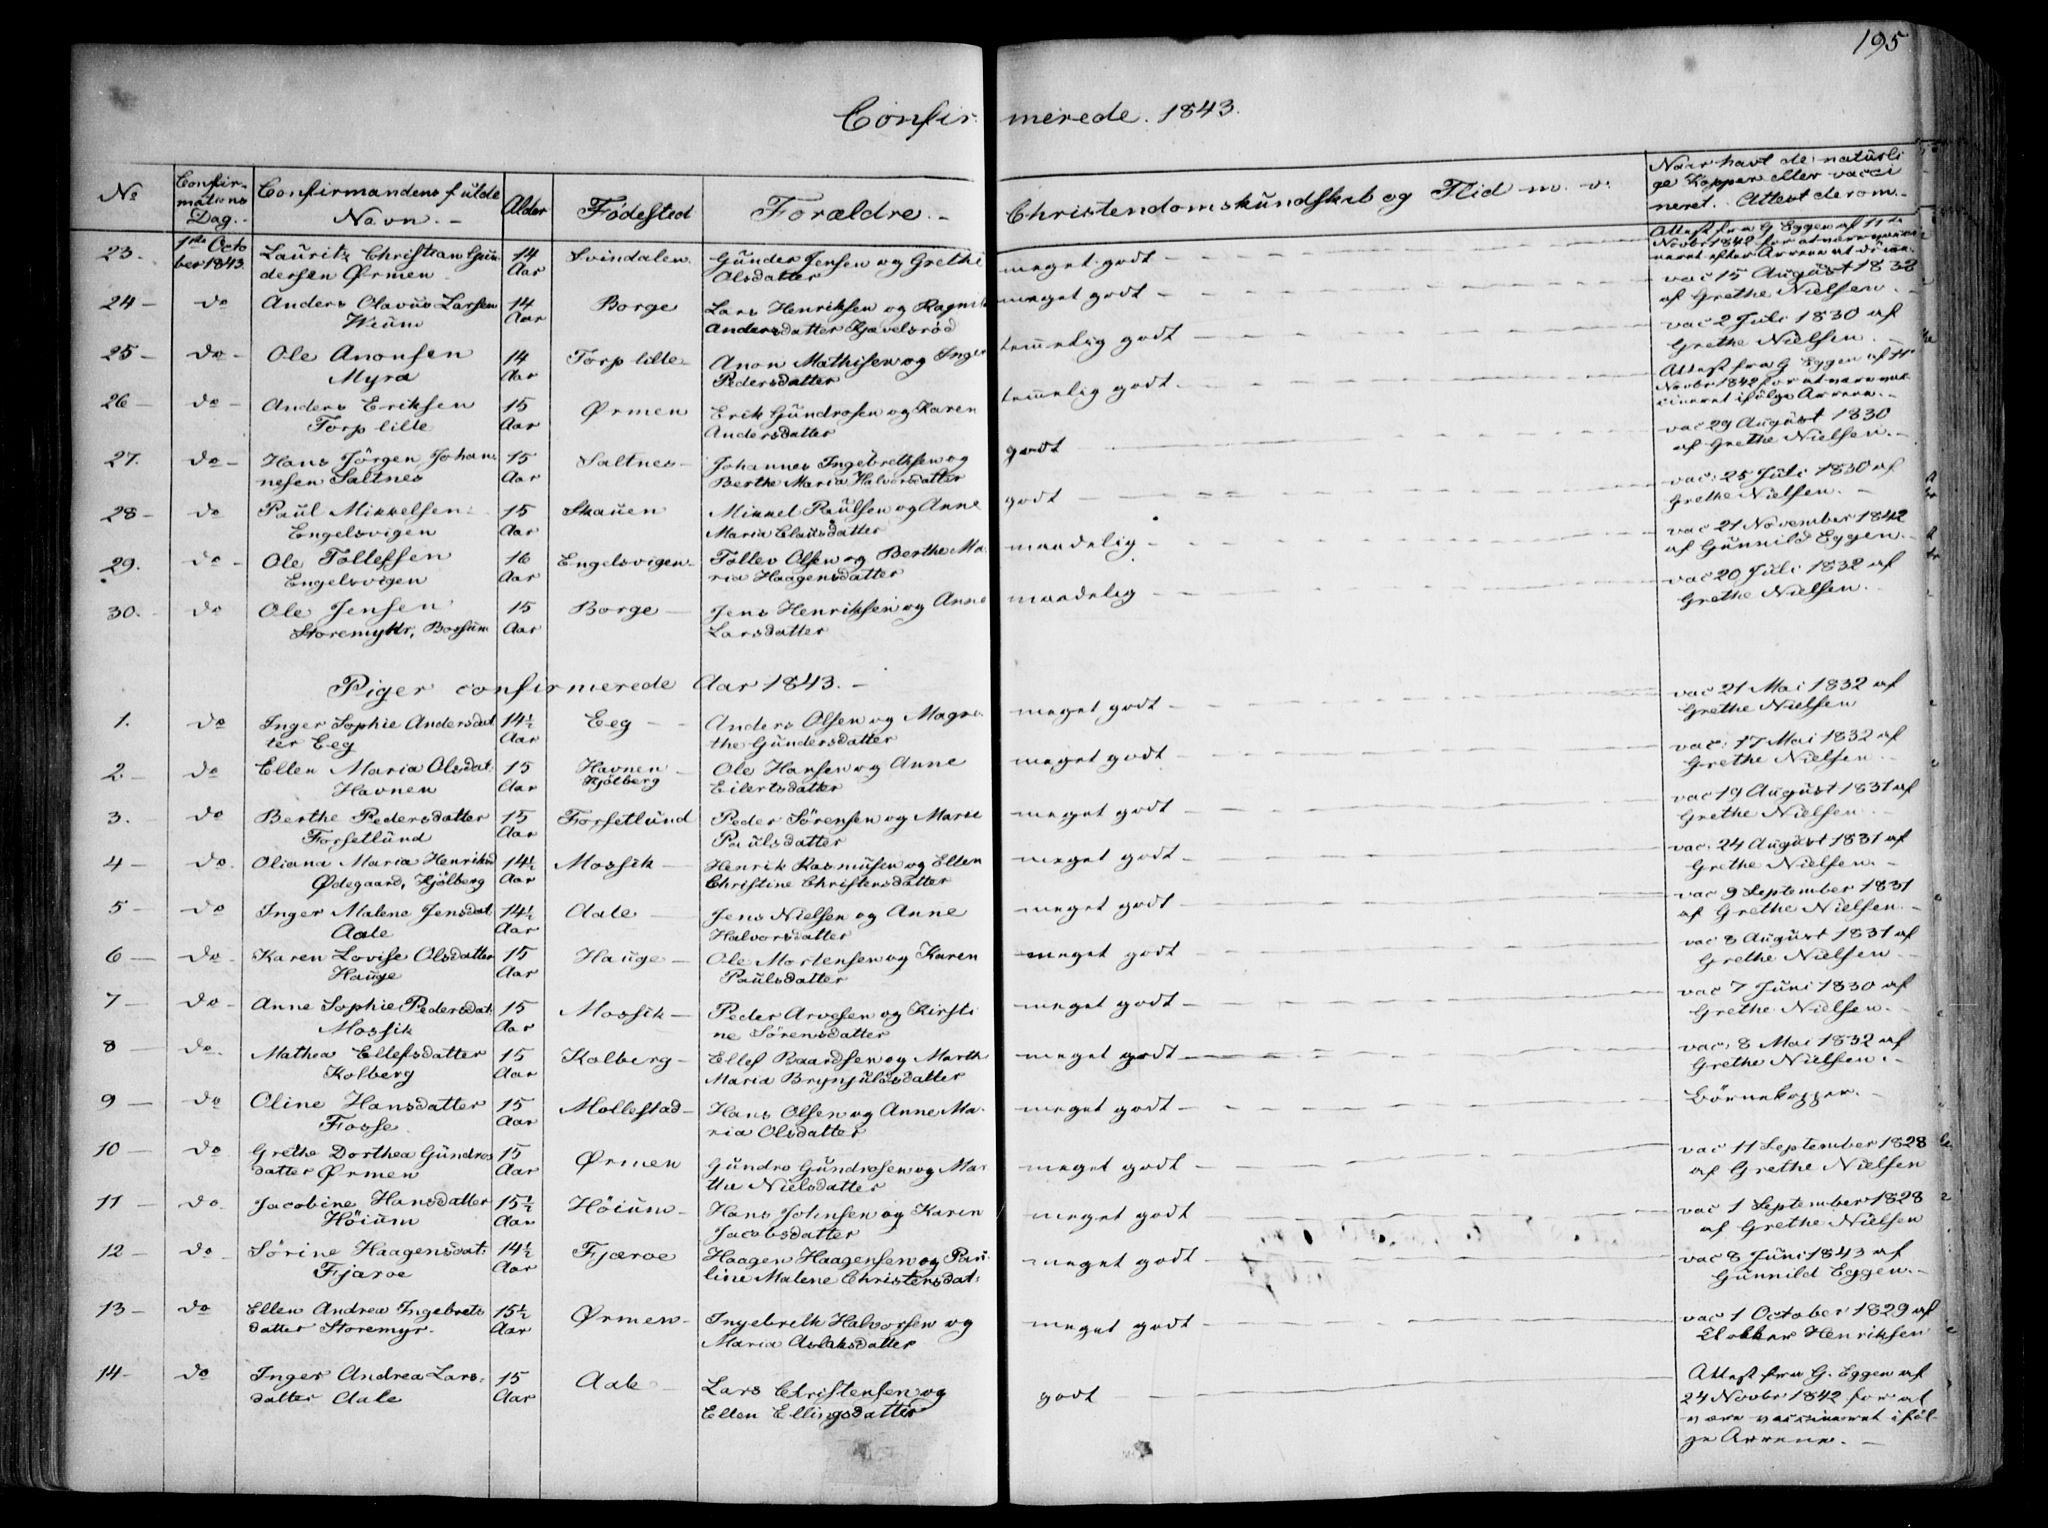 195
Confirmerede. 1843.
No
Confirmations Dag.
Confirmandens fulde Navn.
Alder
Födested
Forældre.
Christendomskundskab og Flid m. v.
Naar havt de naturlige Kopper eller vaccineret. Attest derom
23. 1ste October 1843. Lauritz Christian Gun- 14 Svindalen Gunder Jensen og Grethe meget godt Attest fra G Eggen af 11te
dersen Ørmen Aar Olsdatter Novbr 1842 for at være vacci-
neret efter Arrene at dömme
24 do Anders Olavus Larsen 14 Borge Lars Henriksen og Ragnil meget godt vac 15 August 1832
Wium Aar Andersdatter Kjævelsröd af Grethe Nielsen.
25 do Ole Anonsen 14 Torp lille Anon Mathisen og Inger temmelig godt vac 2 Juli 1830 af
Myra Aar Pedersdatter Grethe Nielsen.
26 do Anders Eriksen 15 Ørmen Erik Gundrosen og Karen temmelig godt. Attest fra G Eggen af 11te
Torp lille Aar Andersdatter Novbr 1842 for at være vac-
cineret ifölge Arrene.
27. do Hans Jörgen Johan- 15 Saltnes Johannes Ingebretksen og godt vac 29 August 1830
nesen Saltnes Aar Berthe Maria Halvorsdatter af Grethe Nielsen.
28 do Paul Mikkelsen 15 Skauen Mikkel Paulsen og Anne godt vac: 25 Juli 1830 af
Engelsvigen Aar Maria Clausdatter Grethe Nielsen.
29. do Ole Tolleffsen 16 Engelsvigen Tollev Olsen og Berthe Ma- maadelig vac 21 November 1842
Engelsvigen Aar ria Haagensdatter af Gunnild Eggen.
30. do Ole Jensen 15 Borge Jens Henriksen og Anne maadelig vac 20 Juli 1832 af
Storemyhr, Borsum Aar Larsdatter Grethe Nielsen.
Piger confirmerede Aar 1843.
1. do Inger Sophie Andersdat 14½ Eeg Anders Olsen og Magre- meget godt vac 21 Mai 1832 af
ter Eeg Aar the Gundersdatter Grethe Nielsen
2. do Ellen Maria Olsdat: 15 Havnen Ole Hansen og Anne meget godt vac: 17 Mai 1832 af
Havnen Aar Kjölberg Eilertsdatter Grethe Nielsen.
3. do Berthe Pedersdatter 15 Forsetlund Peder Sörensen og Marie meget godt vac 19 August 1831 af
Forsetlund Aar Paulsdatter Grethe Nielsen.
4 do. Oliana Maria Henriksd 14½ Mossik Henrik Rasmusen og Ellen meget godt vac: 24 August 1831 af
Ødegaard, Kjölberg Aar Christine Christensdatter Grethe Nielsen.
5 do Inger Malene Jensdat: 14½ Aale Jens Nielsen og Anne meget godt vac 9 September 1831
Aale Aar Halvorsdatter af Grethe Nielsen.
6 do Karen Lovise Olsdatter 15 Hauge Ole Mortensen og Karen meget godt vac 8 August 1831 af
Hauge Aar Paulsdatter Grethe Nielsen
7 do Anne Sophie Pedersdat: 15 Mossik Peder Arvesen og Kirsti- meget godt vac 7 Juni 1830 af
Mossik Aar ne Sörensdatter Grethe Nielsen.
8 do. Mathea Ellefsdatter 15 Kolberg Ellef Baardsen og Marthe meget godt vac: 8 Mai 1832 af
Kolberg Aar Maria Brynjulfsdatter Grethe Nielsen.
9 do Oline Hansdatter 15 Mollestad Hans Olsen og Anne Ma- meget godt Börnekopper.
Fosse Aar ria Olsdatter
10 do Grethe Dorthea Gundros 15 Ørmen Gundro Gundrosen og Mar meget godt vac 11 September 1828
datter Ørmen Aar the Nielsdatter af Grethe Nielsen
11 do Jacobine Hansdatter 15½ Höium Hans Johnsen og Karen meget godt vac 1 September 1828
Höium Aar Jacobsdatter af Grethe Nielsen
12 do Sörine Haagensdat: 14½ Fjæroe Haagen Haagensen og Pau- meget godt vac 8 Juni 1843 af
Fjæroe Aar line Malene Christensdat: Gunnild Eggen.
13 do Ellen Andrea Ingebrets 15½ Ørmen Ingebreth Halvorsen og meget godt vac 1 October 1829 af
datter Storemyr. Aar Maria Aslaksdatter Klokker Henriksen
14 do Inger Andrea Lars: 15 Aale Lars Christensen og godt Attest fra G. Eggen af
datter Aale Aar Ellen Ellingsdatter 24 Novbr 1842 for at
være vaccineret iföl-
ge Arrene.